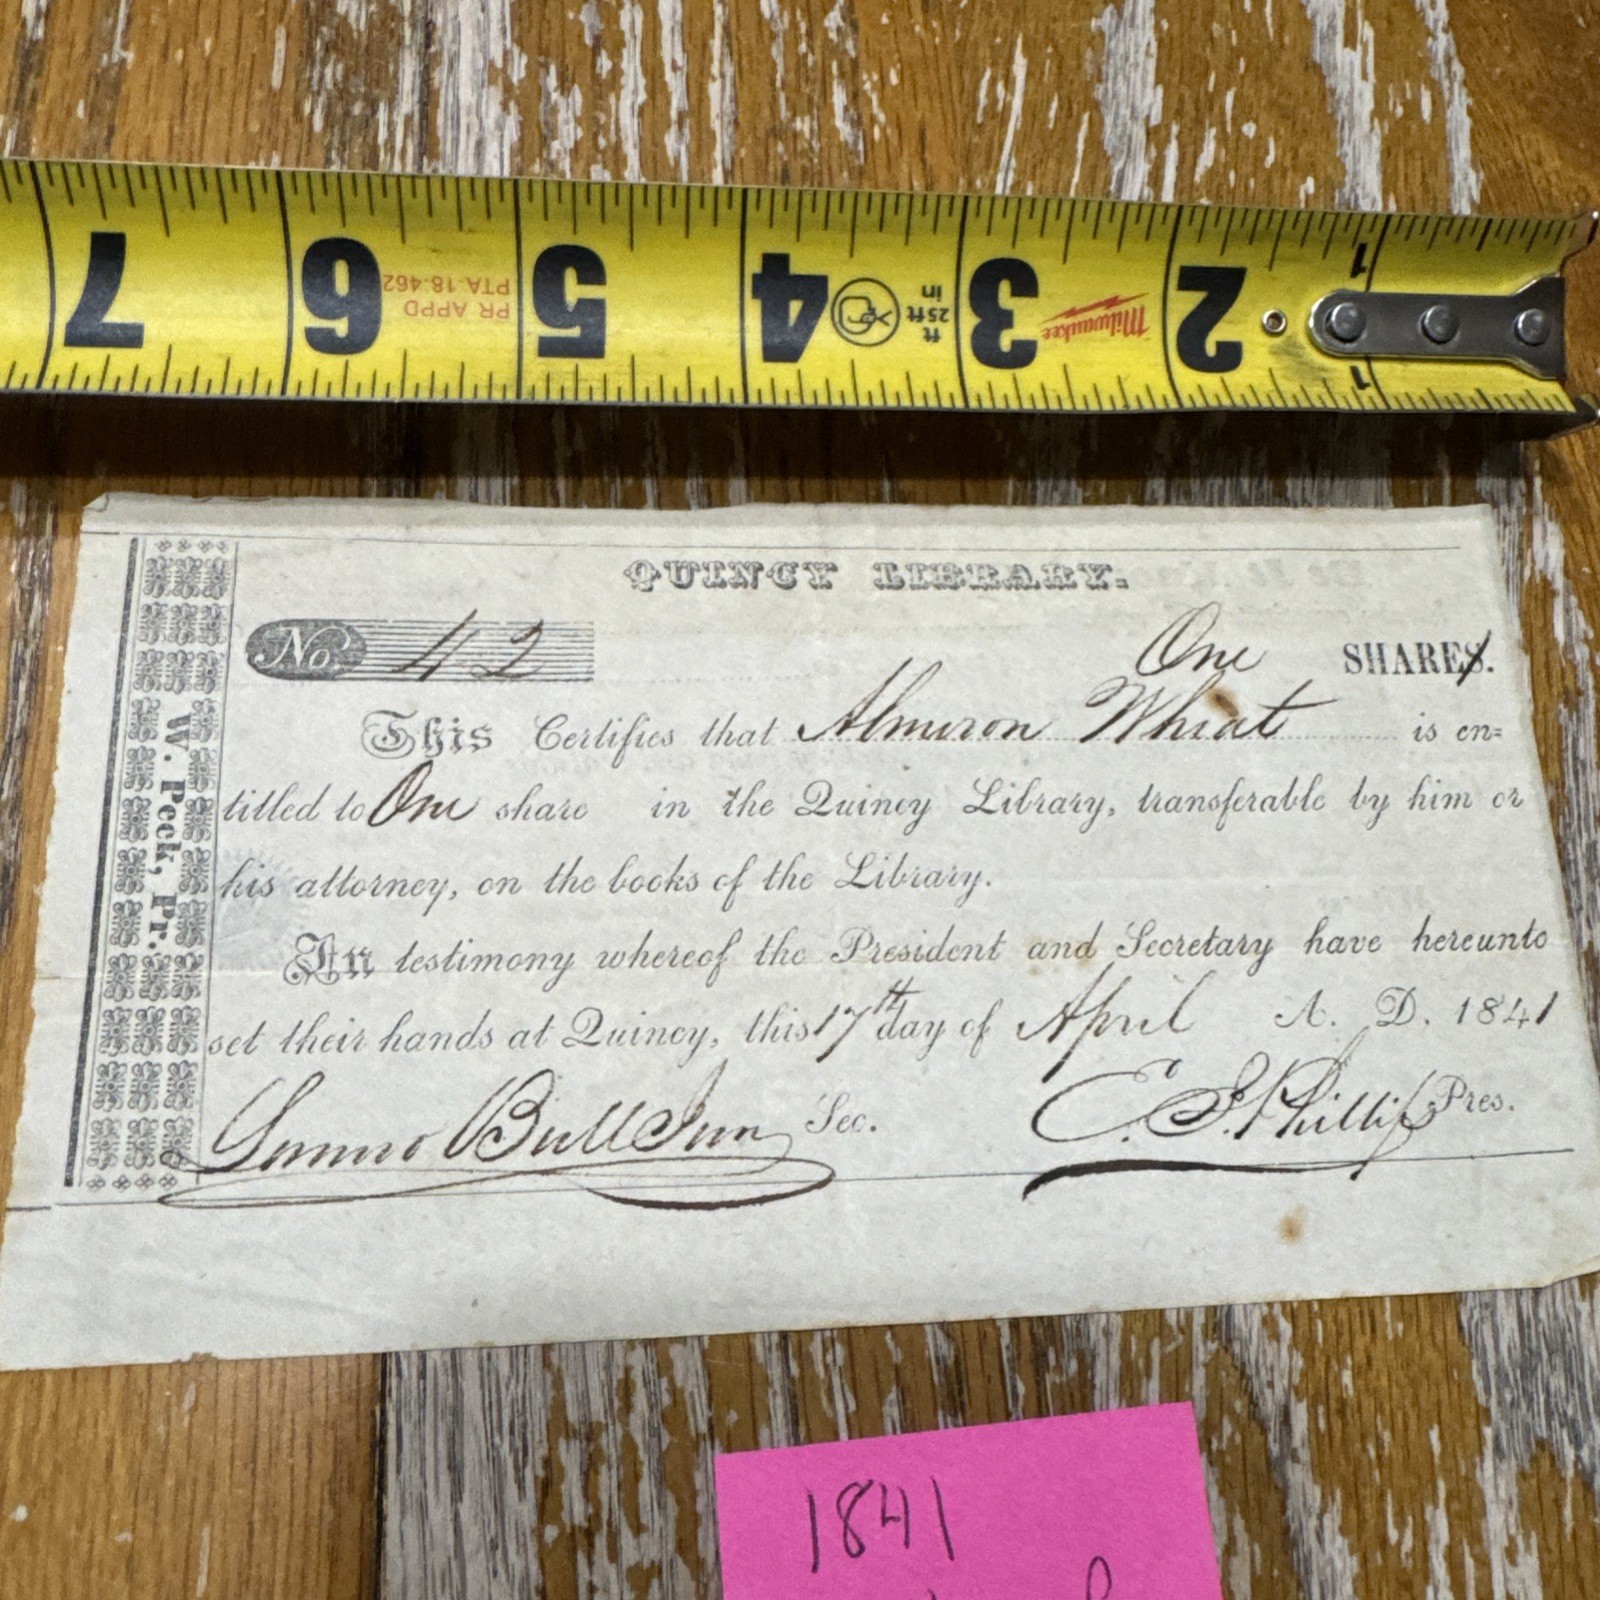 7 6 5 4 3 2 1
PR APPD
PTA-18-462
ft
25ft
in
Milwaukee
1
QUINCY LIBRARY.
No 42
One SHARES.
This Certifies that Almeron Wheat is en=
titled to One share in the Quincy Library, transferable by him or
his attorney, on the books of the Library.
In testimony whereof the President and Secretary have hereunto
set their hands at Quincy, this 17th day of April A. D. 1841
Bull Jun Sec.
E. S. Phillips Pres.
W. Peck, Pr.
1841